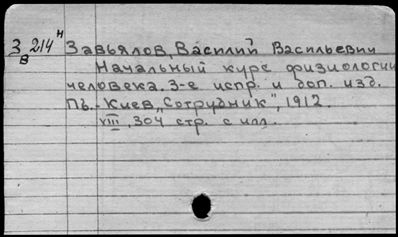 З 214 н
В
Завьялов, Василий Васильевич
Начальный курс физиологии
человека. 3-е испр. и доп. изд.
Пб.-Киев, „Сотрудник", 1912.
VIII, 304 стр. с илл.